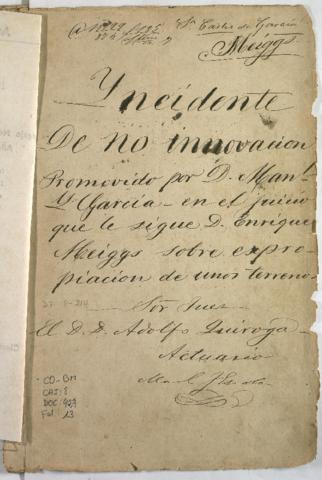 Meiggs
Yncidente
De no innovacion
Promovido por D. Man.l
García - en el juicio
que le sigue D. Enrique
Meiggs sobre expro-
piacion de unos terrenos
Sor Juez
El D. D. Adolfo Quiroga
Actuario
CO-BM
CAJ: 8
DOC: 423
Fol: 13